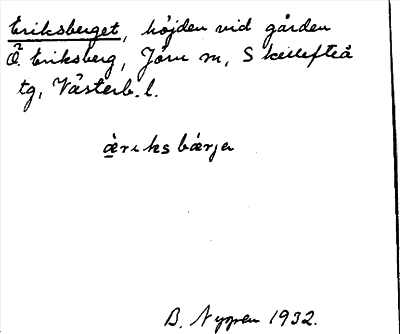 Eriksberget, höjden vid gården
Ö. Eriksberg, Jörn m, Skellefteå
tg, Västerb. l.
äriksbärjə
B. Nyman 1932.